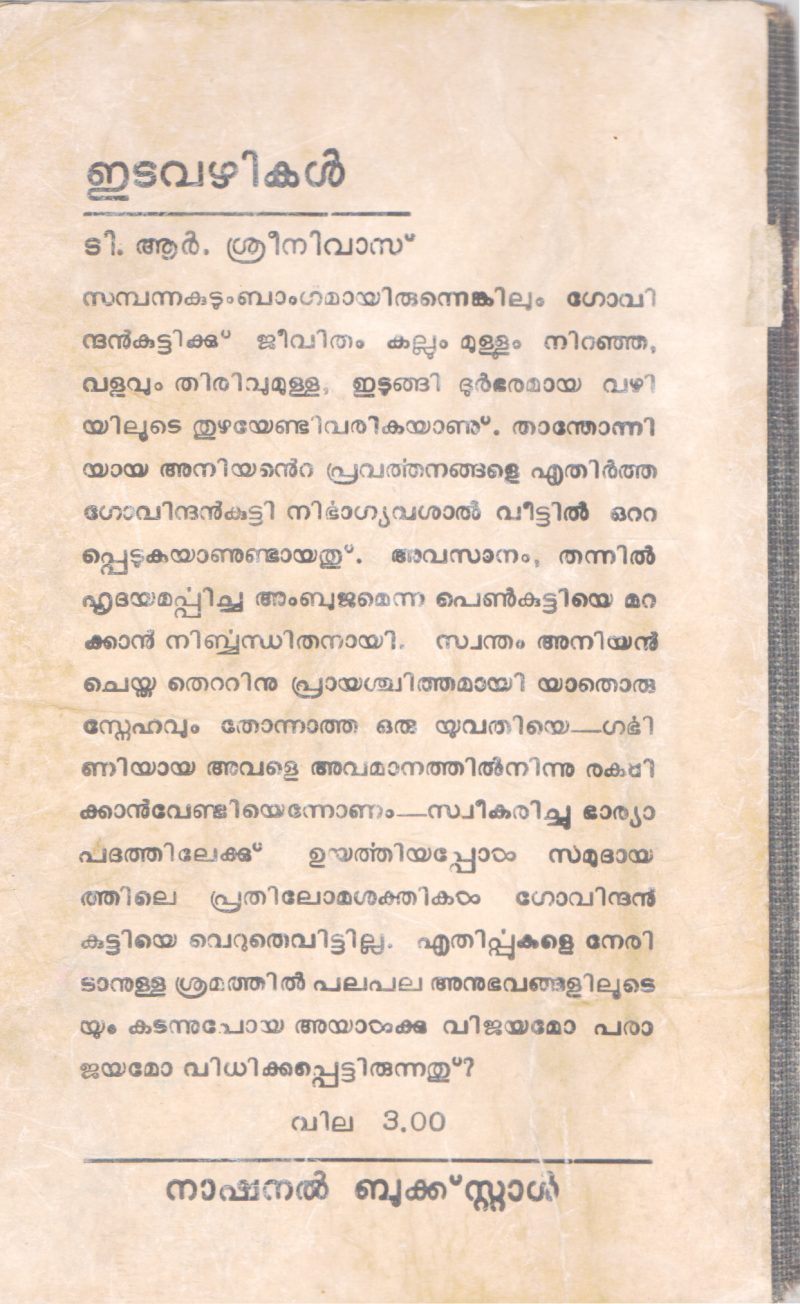 ഇടവഴികൾ
ടി. ആർ. ശ്രീനിവാസ്
സമ്പന്നകുടുംബാംഗമായിരുന്നെങ്കിലും ഗോവി
ന്ദൻകുട്ടിക്കു് ജീവിതം കല്ലും മുള്ളും നിറഞ്ഞ,
വളവും തിരിവുമുള്ള, ഇടുങ്ങി ദുർഭരമായ വഴി
യിലൂടെ തുഴയേണ്ടിവരികയാണു്. താന്തോന്നി
യായ അനിയൻെറ പ്രവൎത്തനങ്ങളെ എതിർത്ത
ഗോവിന്ദൻകുട്ടി നിൎഭാഗ്യവശാൽ വീട്ടിൽ ഒററ
പ്പെടുകയാണുണ്ടായതു്. അവസാനം, തന്നിൽ
ഹൃദയമൎപ്പിച്ച അംബുജമെന്ന പെൺകുട്ടിയെ മറ
ക്കാൻ നിൎബ്ബന്ധിതനായി. സ്വന്തം അനിയൻ
ചെയ്ത തെററിനു പ്രായശ്ചിത്തമായി യാതൊരു
സ്നേഹവും തോന്നാത്ത ഒരു യുവതിയെ—ഗൎഭി
ണിയായ അവളെ അവമാനത്തിൽനിന്നു രക്ഷി
ക്കാൻവേണ്ടിയെന്നോണം—സ്വീകരിച്ചു ഭാര്യാ
പദത്തിലേക്കു് ഉയൎത്തിയപ്പോൾ സമുദായ
ത്തിലെ പ്രതിലോമശക്തികൾ ഗോവിന്ദൻ
കുട്ടിയെ വെറുതെവിട്ടില്ല. എതിൎപ്പുകളെ നേരി
ടാനുള്ള ശ്രമത്തിൽ പലപല അനുഭവങ്ങളിലൂടെ
യും കടന്നുപോയ അയാൾക്കു വിജയമോ പരാ
ജയമോ വിധിക്കപ്പെട്ടിരുന്നതു്?
വില 3.00
നാഷനൽ ബുക്ക്സ്റ്റാൾ